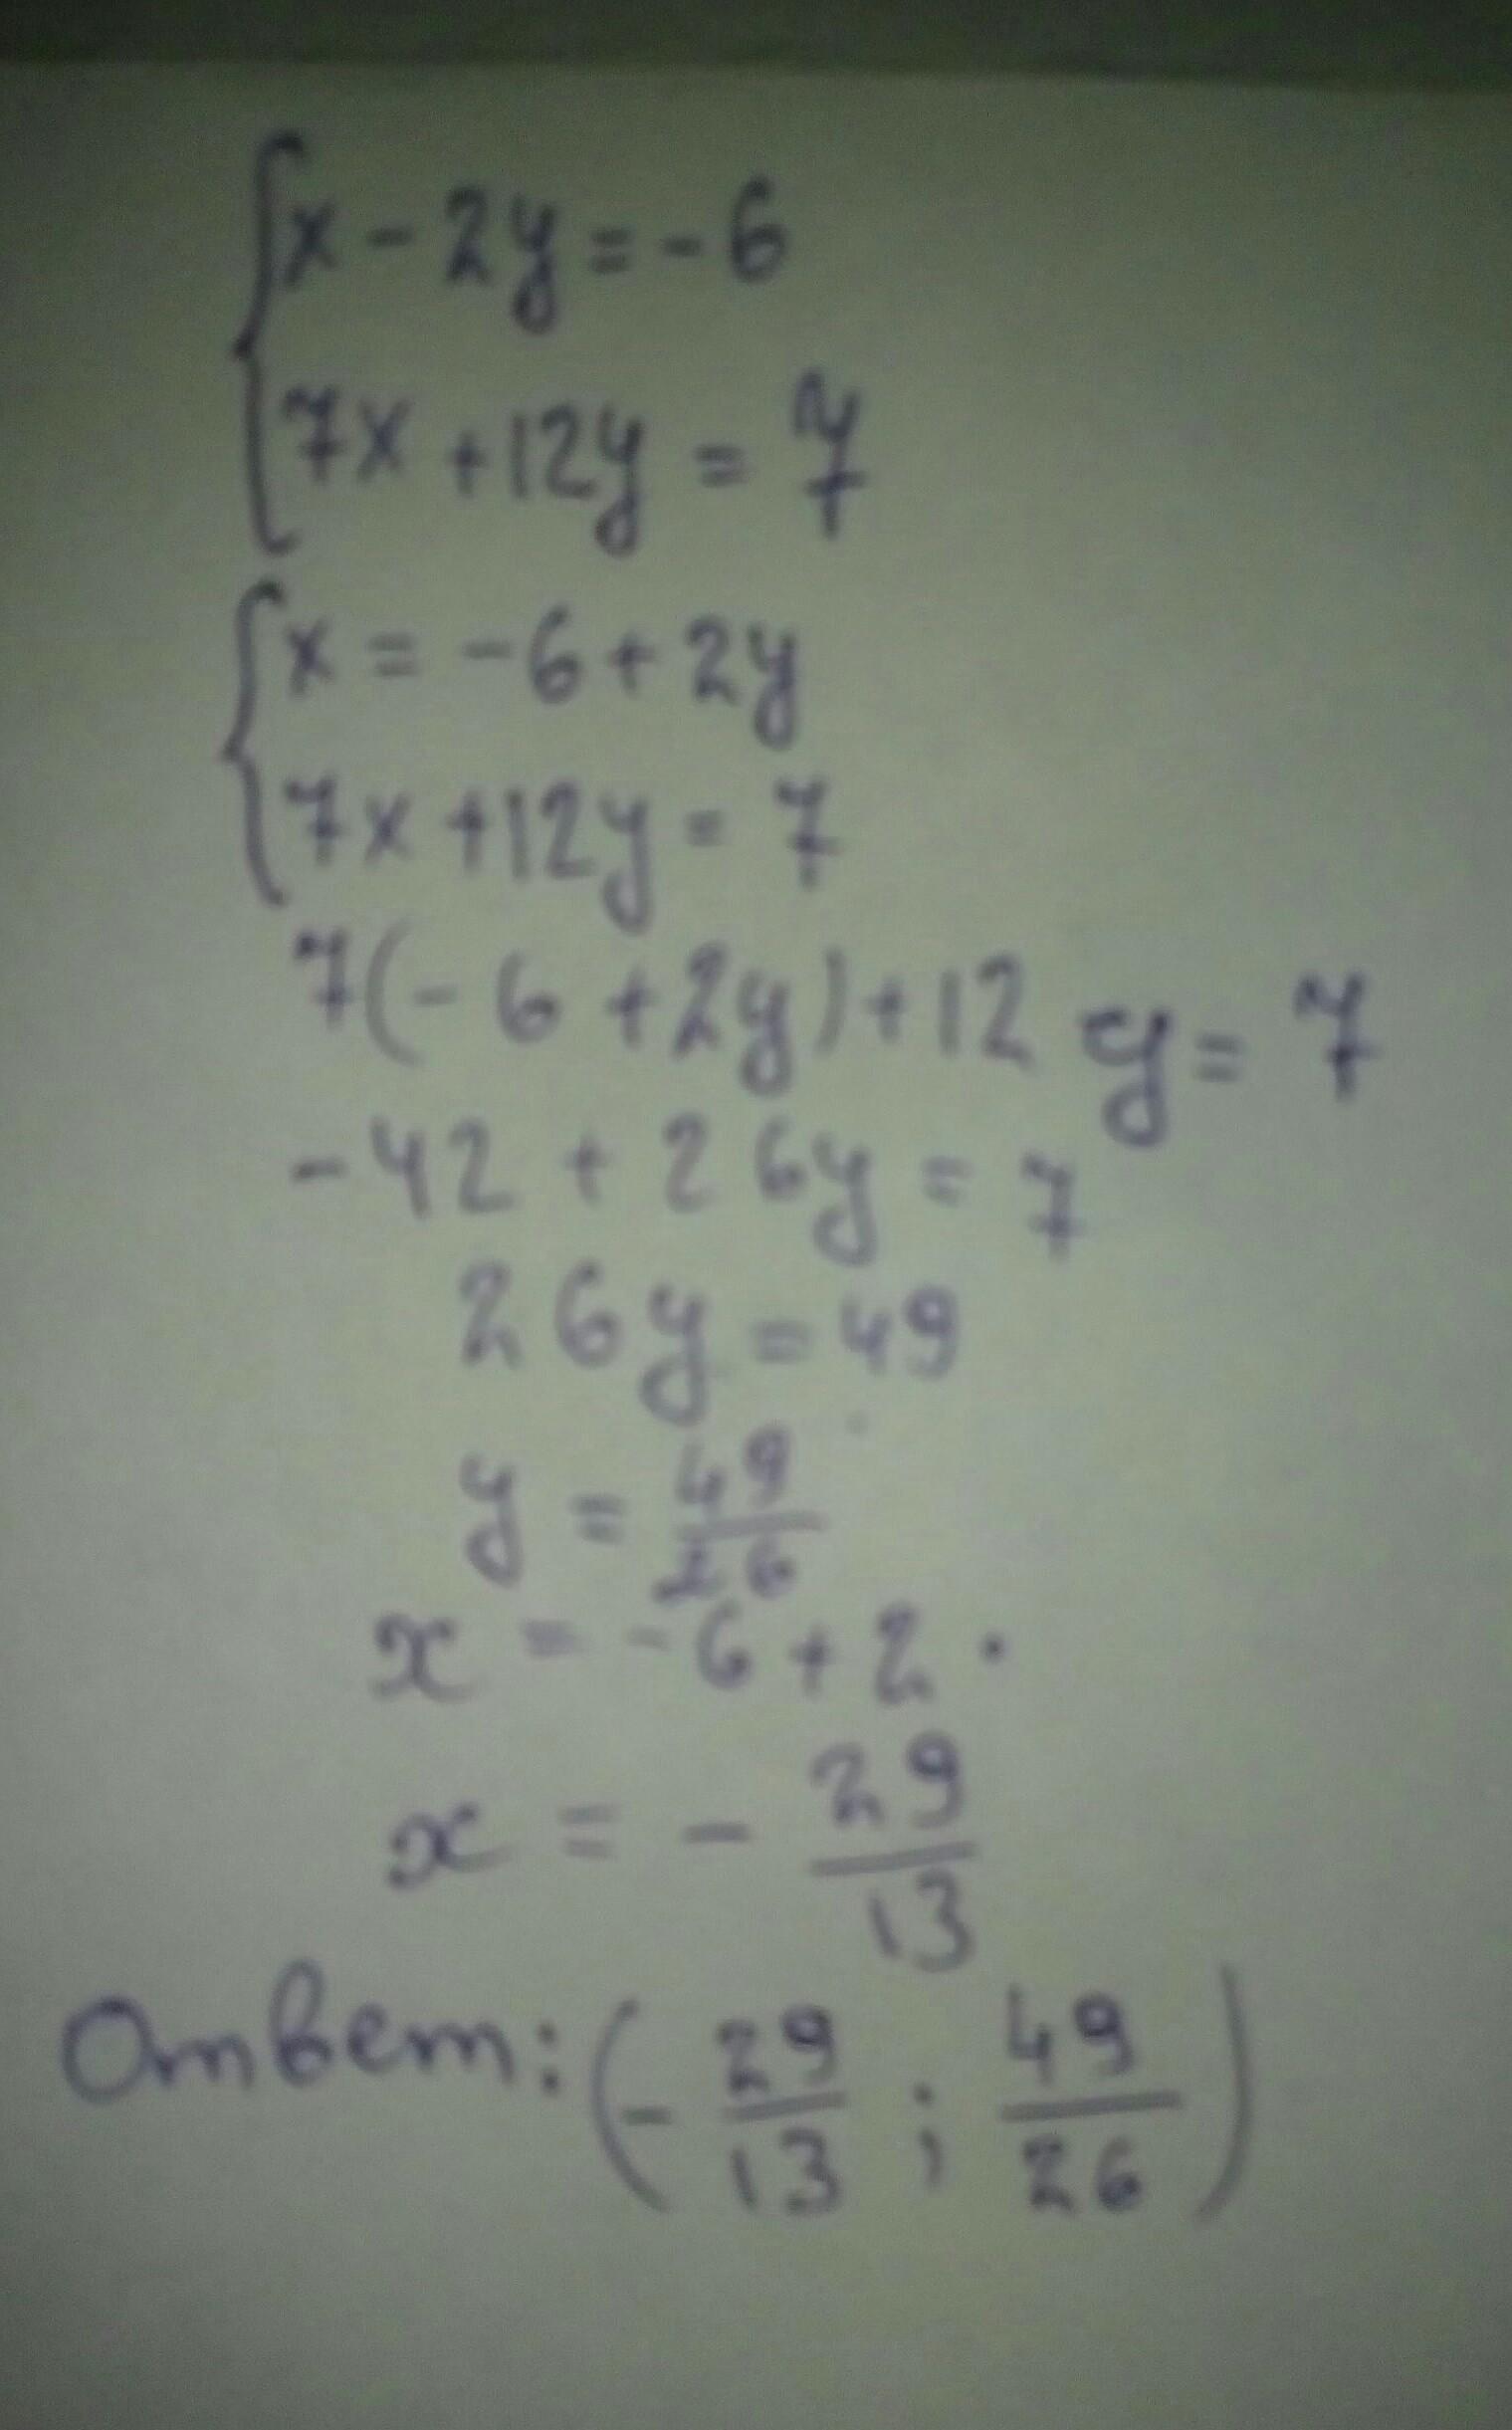 x - 2y = -6
7x + 12y = 7
x = -6 + 2y
7x + 12y = 7
7(-6 + 2y) + 12y = 7
-42 + 26y = 7
26y = 49
y = 49/26
x = -6 + 2 ·
x = - 29/13
Ответ: (- 29/13 ; 49/26)